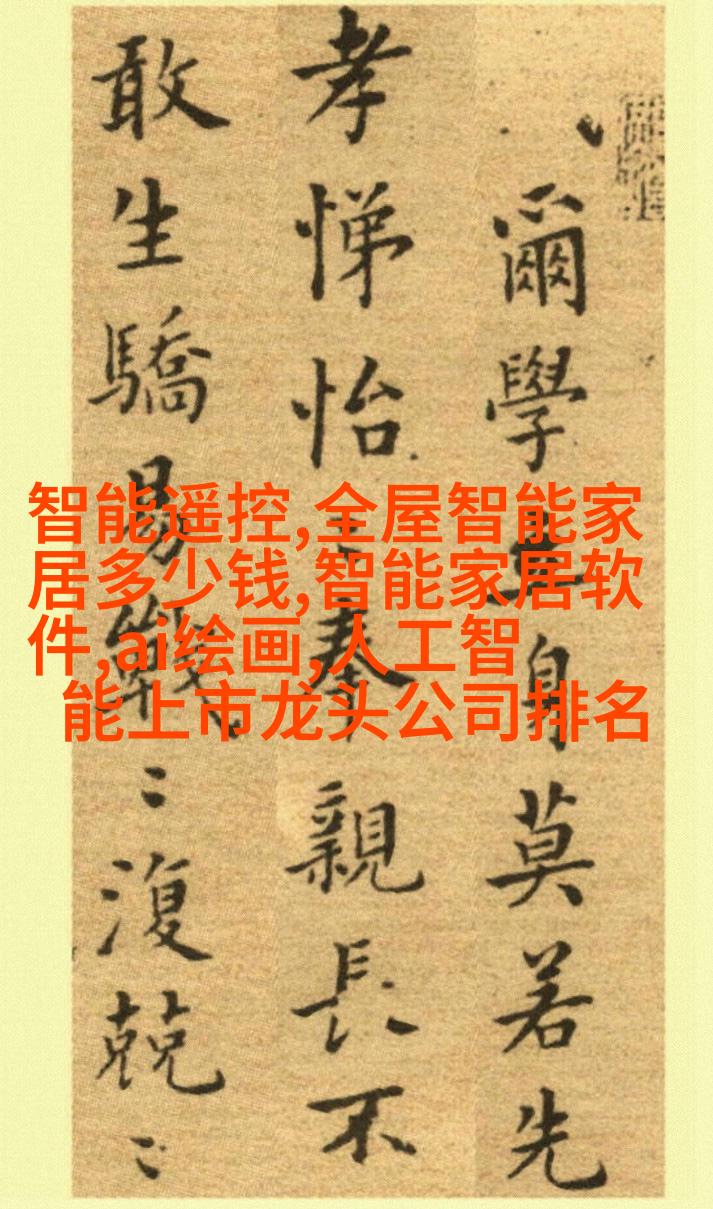 爾學立身莫若先
孝悌怡〻奉親長不
敢生驕易戰〻復兢〻
智能遥控,全屋智能家
居多少钱,智能家居软
件,ai绘画,人工智
能上市龙头公司排名